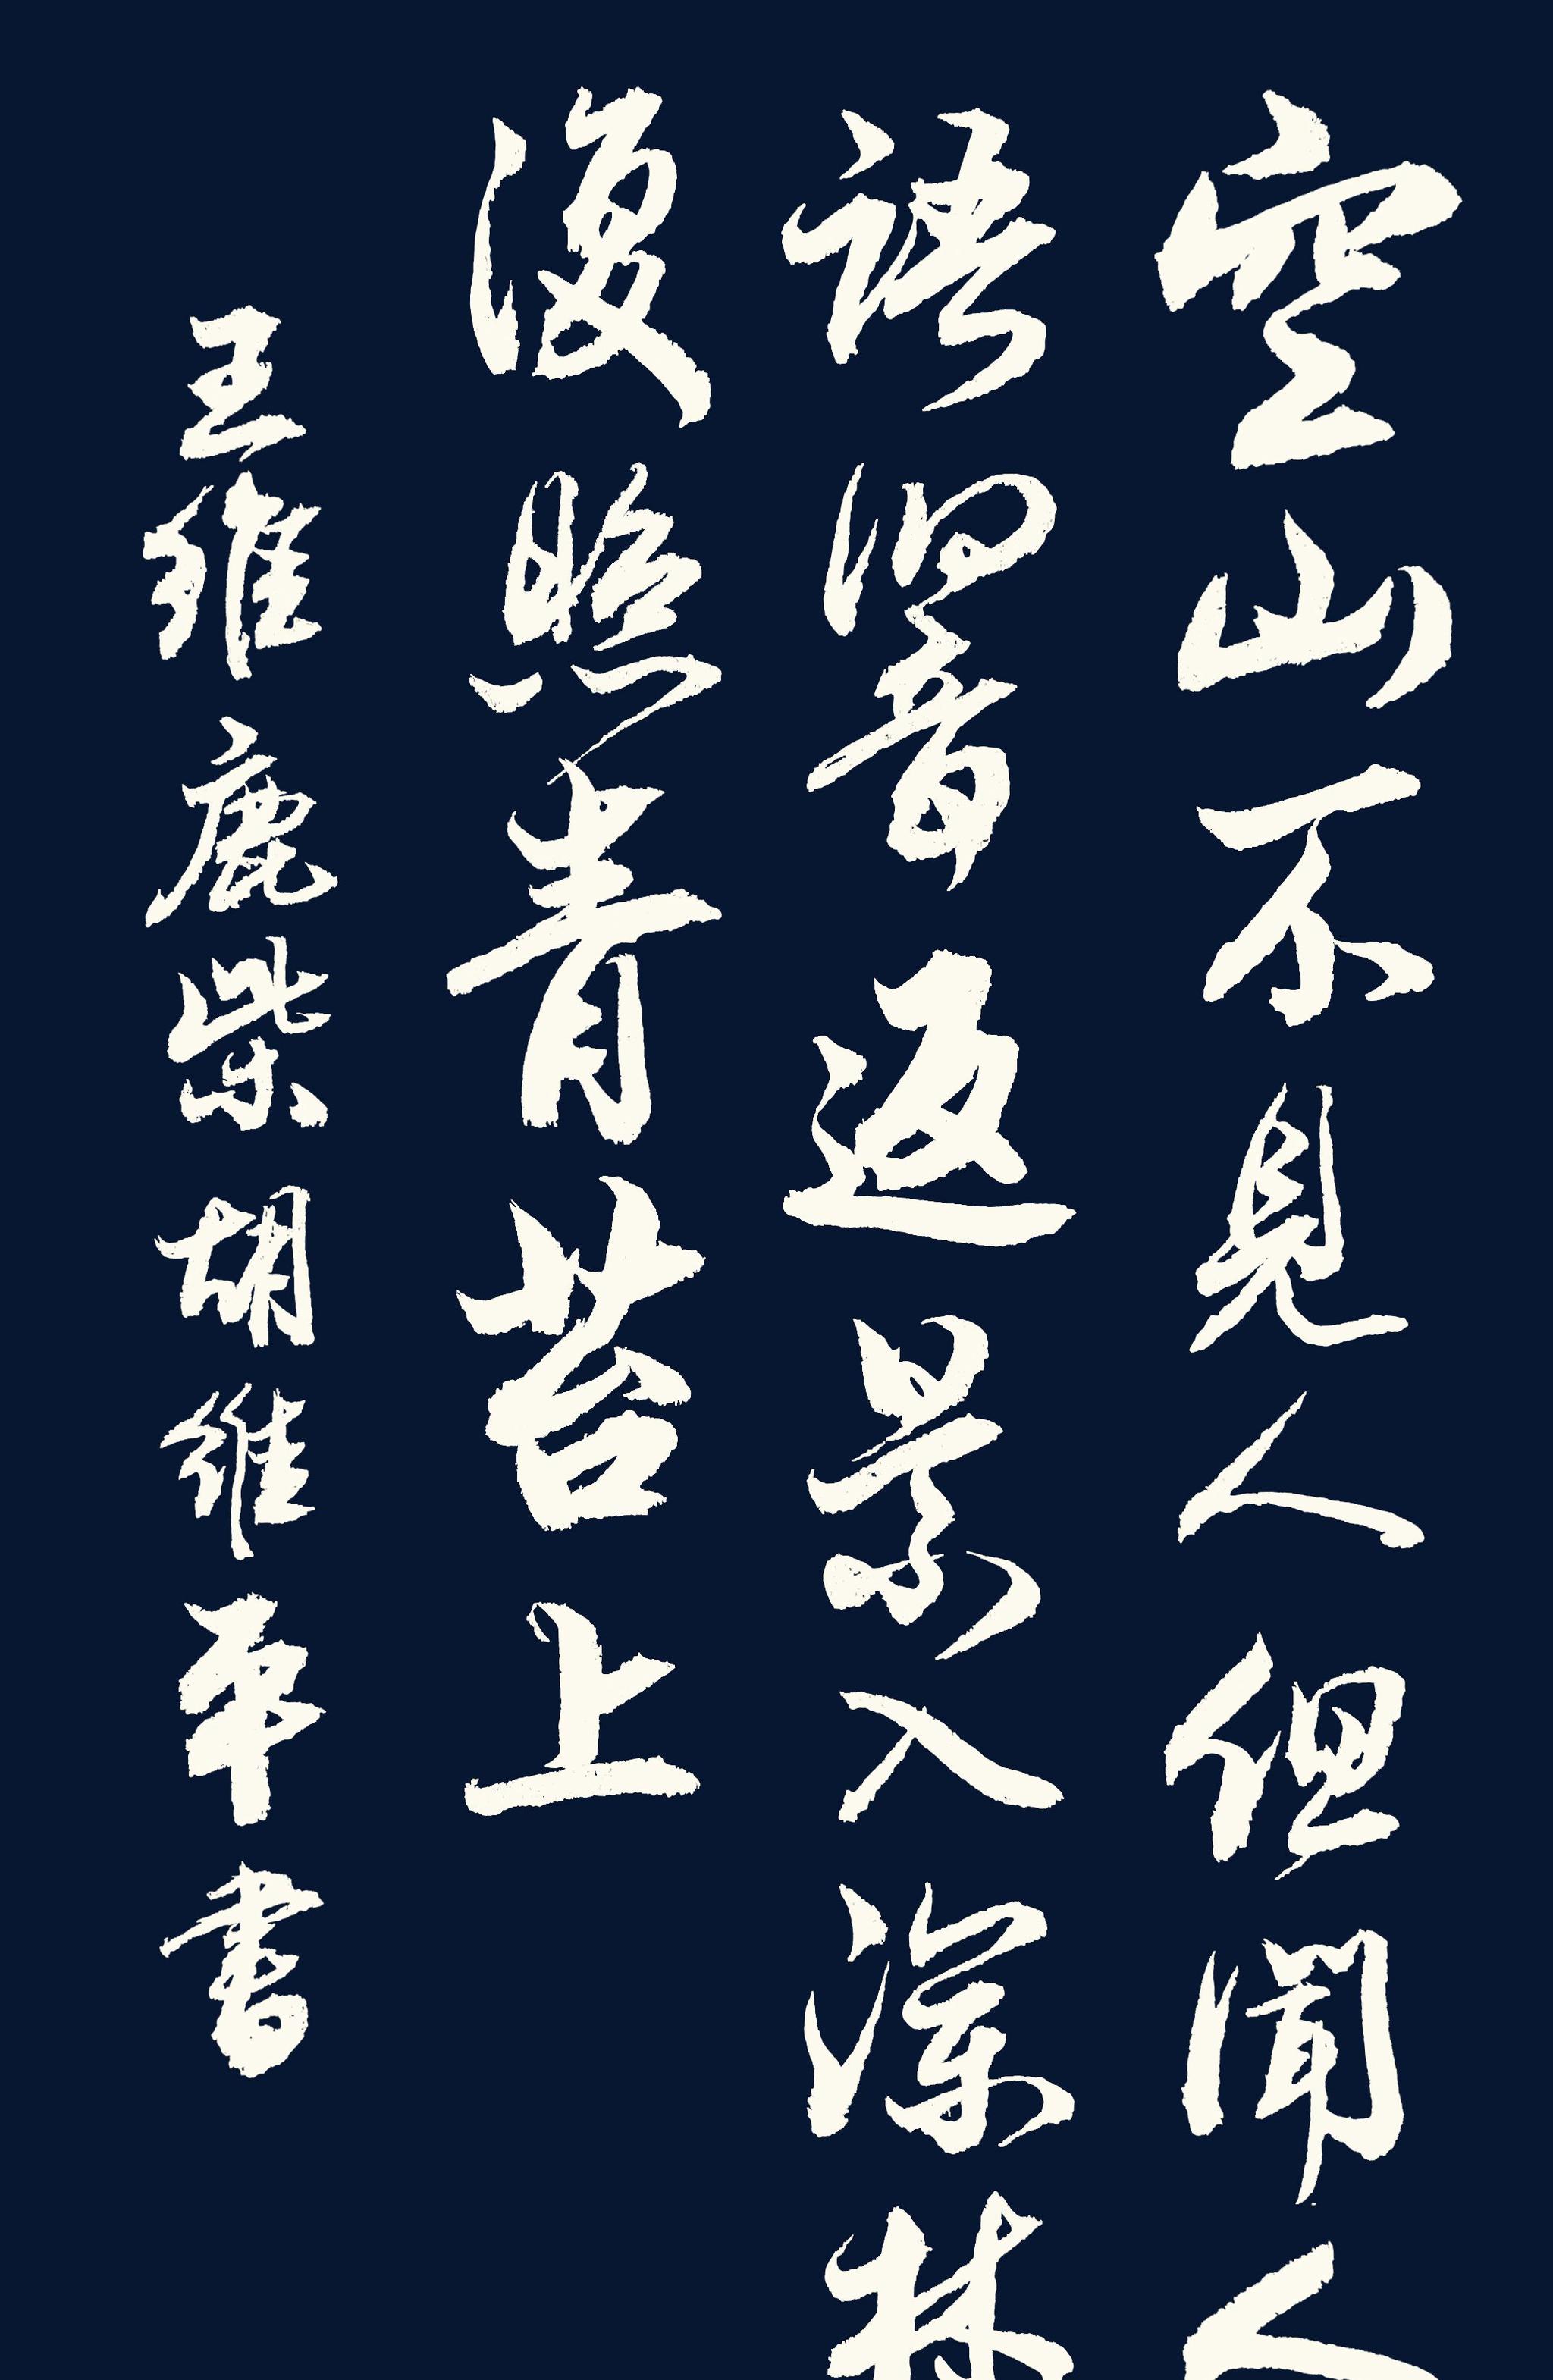 空山不見人但聞人
語響返景入深林
復照青苔上
王維鹿柴胡維軍書